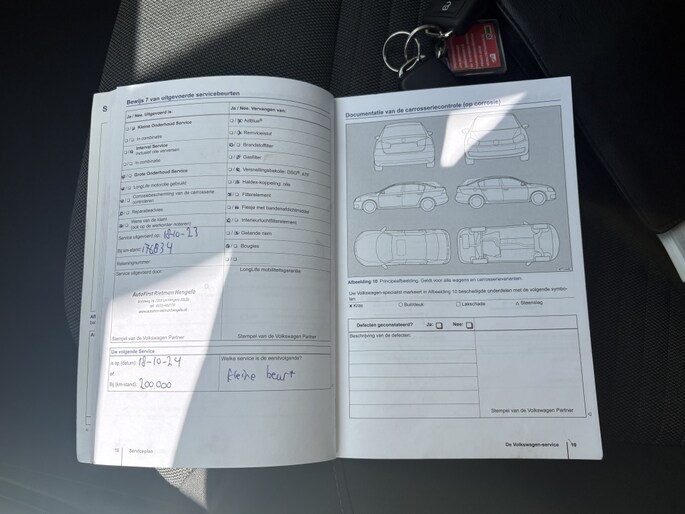 S
Bewijs 7 van uitgevoerde servicebeurten
Ja / Nee, Uitgevoerd is:
Kleine Onderhoud Service
In combinatie
Interval Service
In combinatie
Grote Onderhoud Service
LongLife motorolie gebruikt
Reparatieadvies
Wens van de klant
(ook op de werkorder noteren)
Service uitgevoerd op: 18-10-23
Bij km-stand: 176834
Rekeningnummer:
Service uitgevoerd door:
AutoFirst Rietman Hengelo
Stempel van de Volkswagen Partner
Ja / Nee, Vervangen van:
AdBlue®
Remvloeistof
Brandstoffilter
Gasfilter
Haldex-koppeling: olie
Filterelement
Interieurluchtfilterelement
Getande riem
Bougies
LongLife mobiliteitsgarantie
Stempel van de Volkswagen Partner
Uw volgende Service
Is op (datum): 18-10-24
of
Bij (km-stand): 200.000
Welke service is de eerstvolgende?
kleine beurt
18 Serviceplan
Documentatie van de carrosseriecontrole (op corrosie)
Afbeelding 10 Principeafbeelding. Geldt voor alle wagens en carrosserievarianten.
Uw Volkswagen-specialist markeert in Afbeelding 10 beschadigde onderdelen met de volgende symbolen
Kras Buil/deuk Lakschade Steenslag
Defecten geconstateerd? Ja: Nee:
Beschrijving van de defecten:
Stempel van de Volkswagen Partner
De Volkswagen-service 19